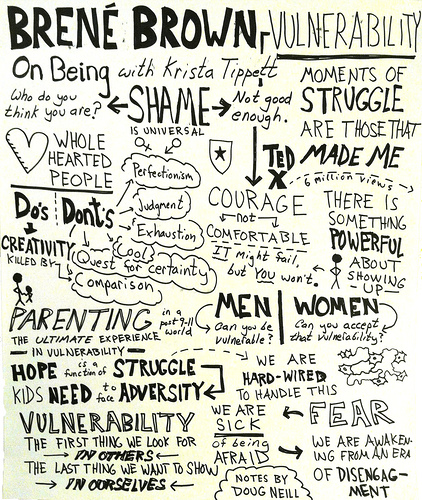 BRENÉ BROWN, VULNERABILITY
On Being with Krista Tippett
Who do you
think you are?
SHAME
IS UNIVERSAL
Not good
enough.
MOMENTS OF
STRUGGLE
ARE THOSE THAT
MADE ME
WHOLE
HEARTED
PEOPLE
TED
X
6 million views
Do's
Dont's
CREATIVITY
KILLED BY
Perfectionism
Judgment
Exhaustion
Cool
Quest for certainty
Comparison
COURAGE
not
COMFORTABLE
IT might fail,
but YOU won't.
THERE IS
SOMETHING
POWERFUL
ABOUT
SHOWING
UP
PARENTING
in a
post 9-11
world
THE ULTIMATE EXPERIENCE
IN VULNERABILITY
MEN
Can you be
vulnerable?
WOMEN
Can you accept
that vulnerability?
HOPE is a function of STRUGGLE
KIDS NEED to face ADVERSITY
WE ARE
HARD-WIRED
TO HANDLE THIS
VULNERABILITY
THE FIRST THING WE LOOK FOR
IN OTHERS
THE LAST THING WE WANT TO SHOW
IN OURSELVES
WE ARE
SICK
of being
AFRAID
FEAR
WE ARE AWAKEN-
ING FROM AN ERA
OF DISENGAG-
MENT
NOTES BY
DOUG NEILL